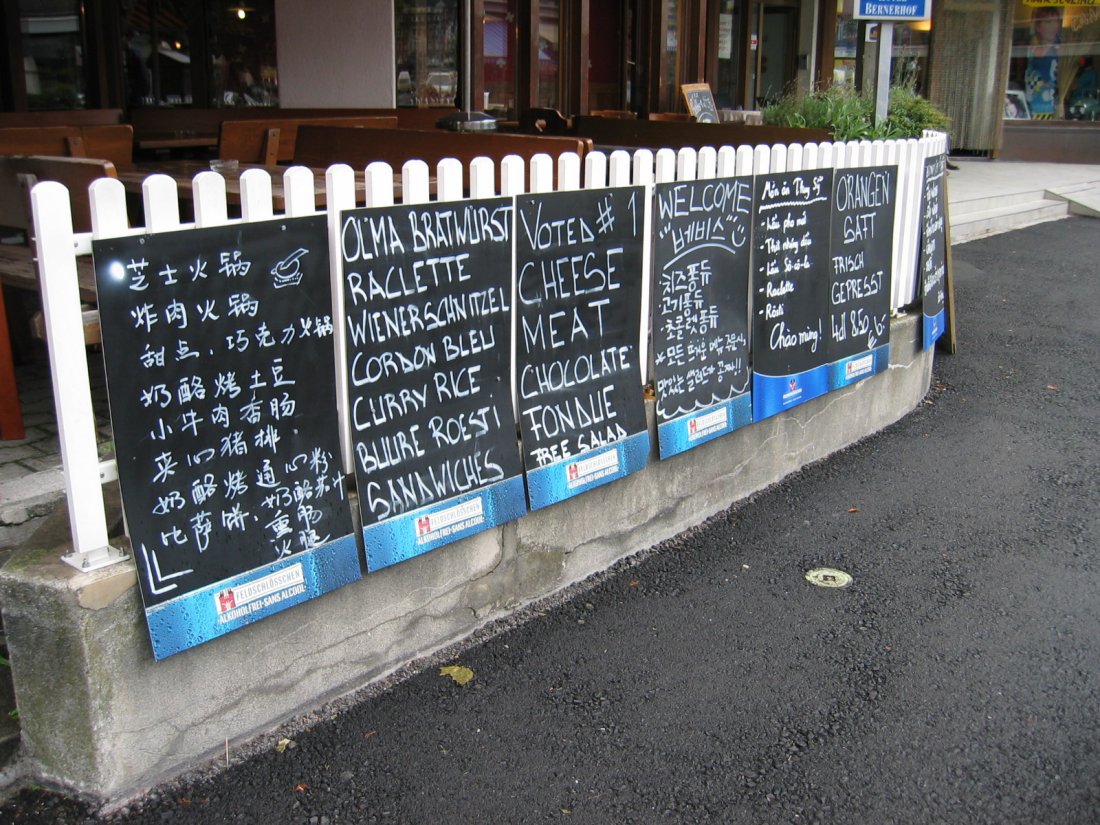 芝士火锅
炸肉火锅
甜点.巧克力火锅
奶酪烤土豆
小牛肉香肠
夹心猪排.
奶酪烤通心粉
比萨饼.奶酪茶汁
火腿
FELDSCHLÖSSCHEN
ALKOHOLFREI-SANS ALCOOL
OLMA BRATWÜRST
RACLETTE
WIENERSCHNITZEL
CORDON BLEU
CURRY RICE
BUURE ROESTI
SANDWICHES
FELDSCHLÖSSCHEN
ALKOHOLFREI-SANS ALCOOL
VOTED #1
CHEESE
MEAT
CHOCOLATE
FONDUE
FREE SALAD
FELDSCHLÖSSCHEN
ALKOHOLFREI-SANS ALCOOL
WELCOME
"베비스"
치즈퐁듀
고기퐁듀
초콜렛퐁듀
*모든 뜨거운 메뉴 주문시,
맛있는 샐러드가 공짜!!
FELDSCHLÖSSCHEN
ALKOHOLFREI-SANS ALCOOL
Món ăn Thụy Sỹ
- Lẩu pho mát
- Thịt nhúng dầu
- Lẩu Sô-cô-la
- Raclette
- Rösti
Chào mừng!
ORANGEN
SAFT
FRISCH
GEPRESST
4dl 8.50
BERNERHOF